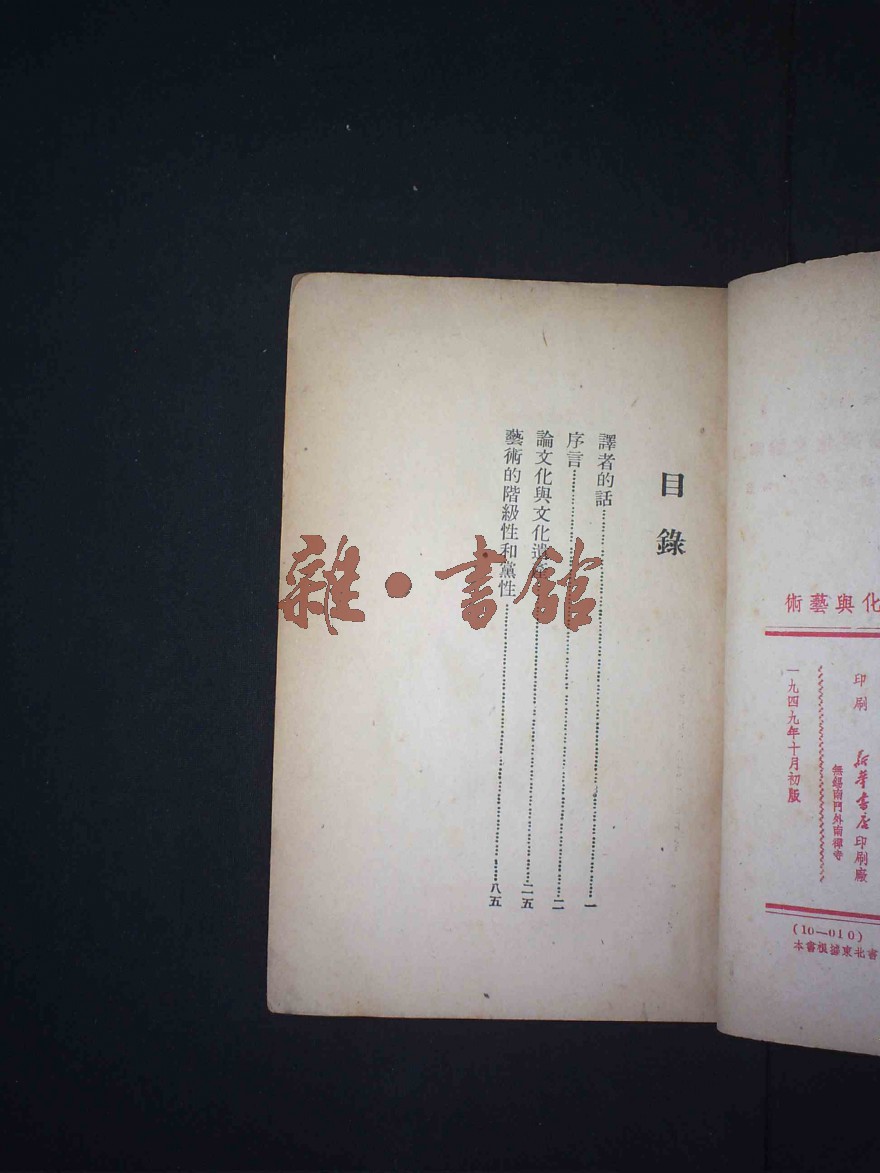 化與藝術
印刷 新華書店印刷廠
無錫南門外南禪寺
一九四九年十月初版
(10—010)
本書根據東北書
目錄
譯者的話……一
序言……二
論文化與文化遺產……二五
藝術的階級性和黨性……八五
雜·書館